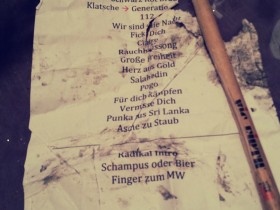 Klatsche → Generation
112
Wir sind die Nacht
Fick Dich
Clique
Rauchhaussong
Große Freiheit
Herz aus Gold
Salahedin
Pogo
Für dich kämpfen
Vermisse Dich
Punka aus Sri Lanka
Asche zu Staub
Radikal Intro
Schampus oder Bier
Finger zum MW